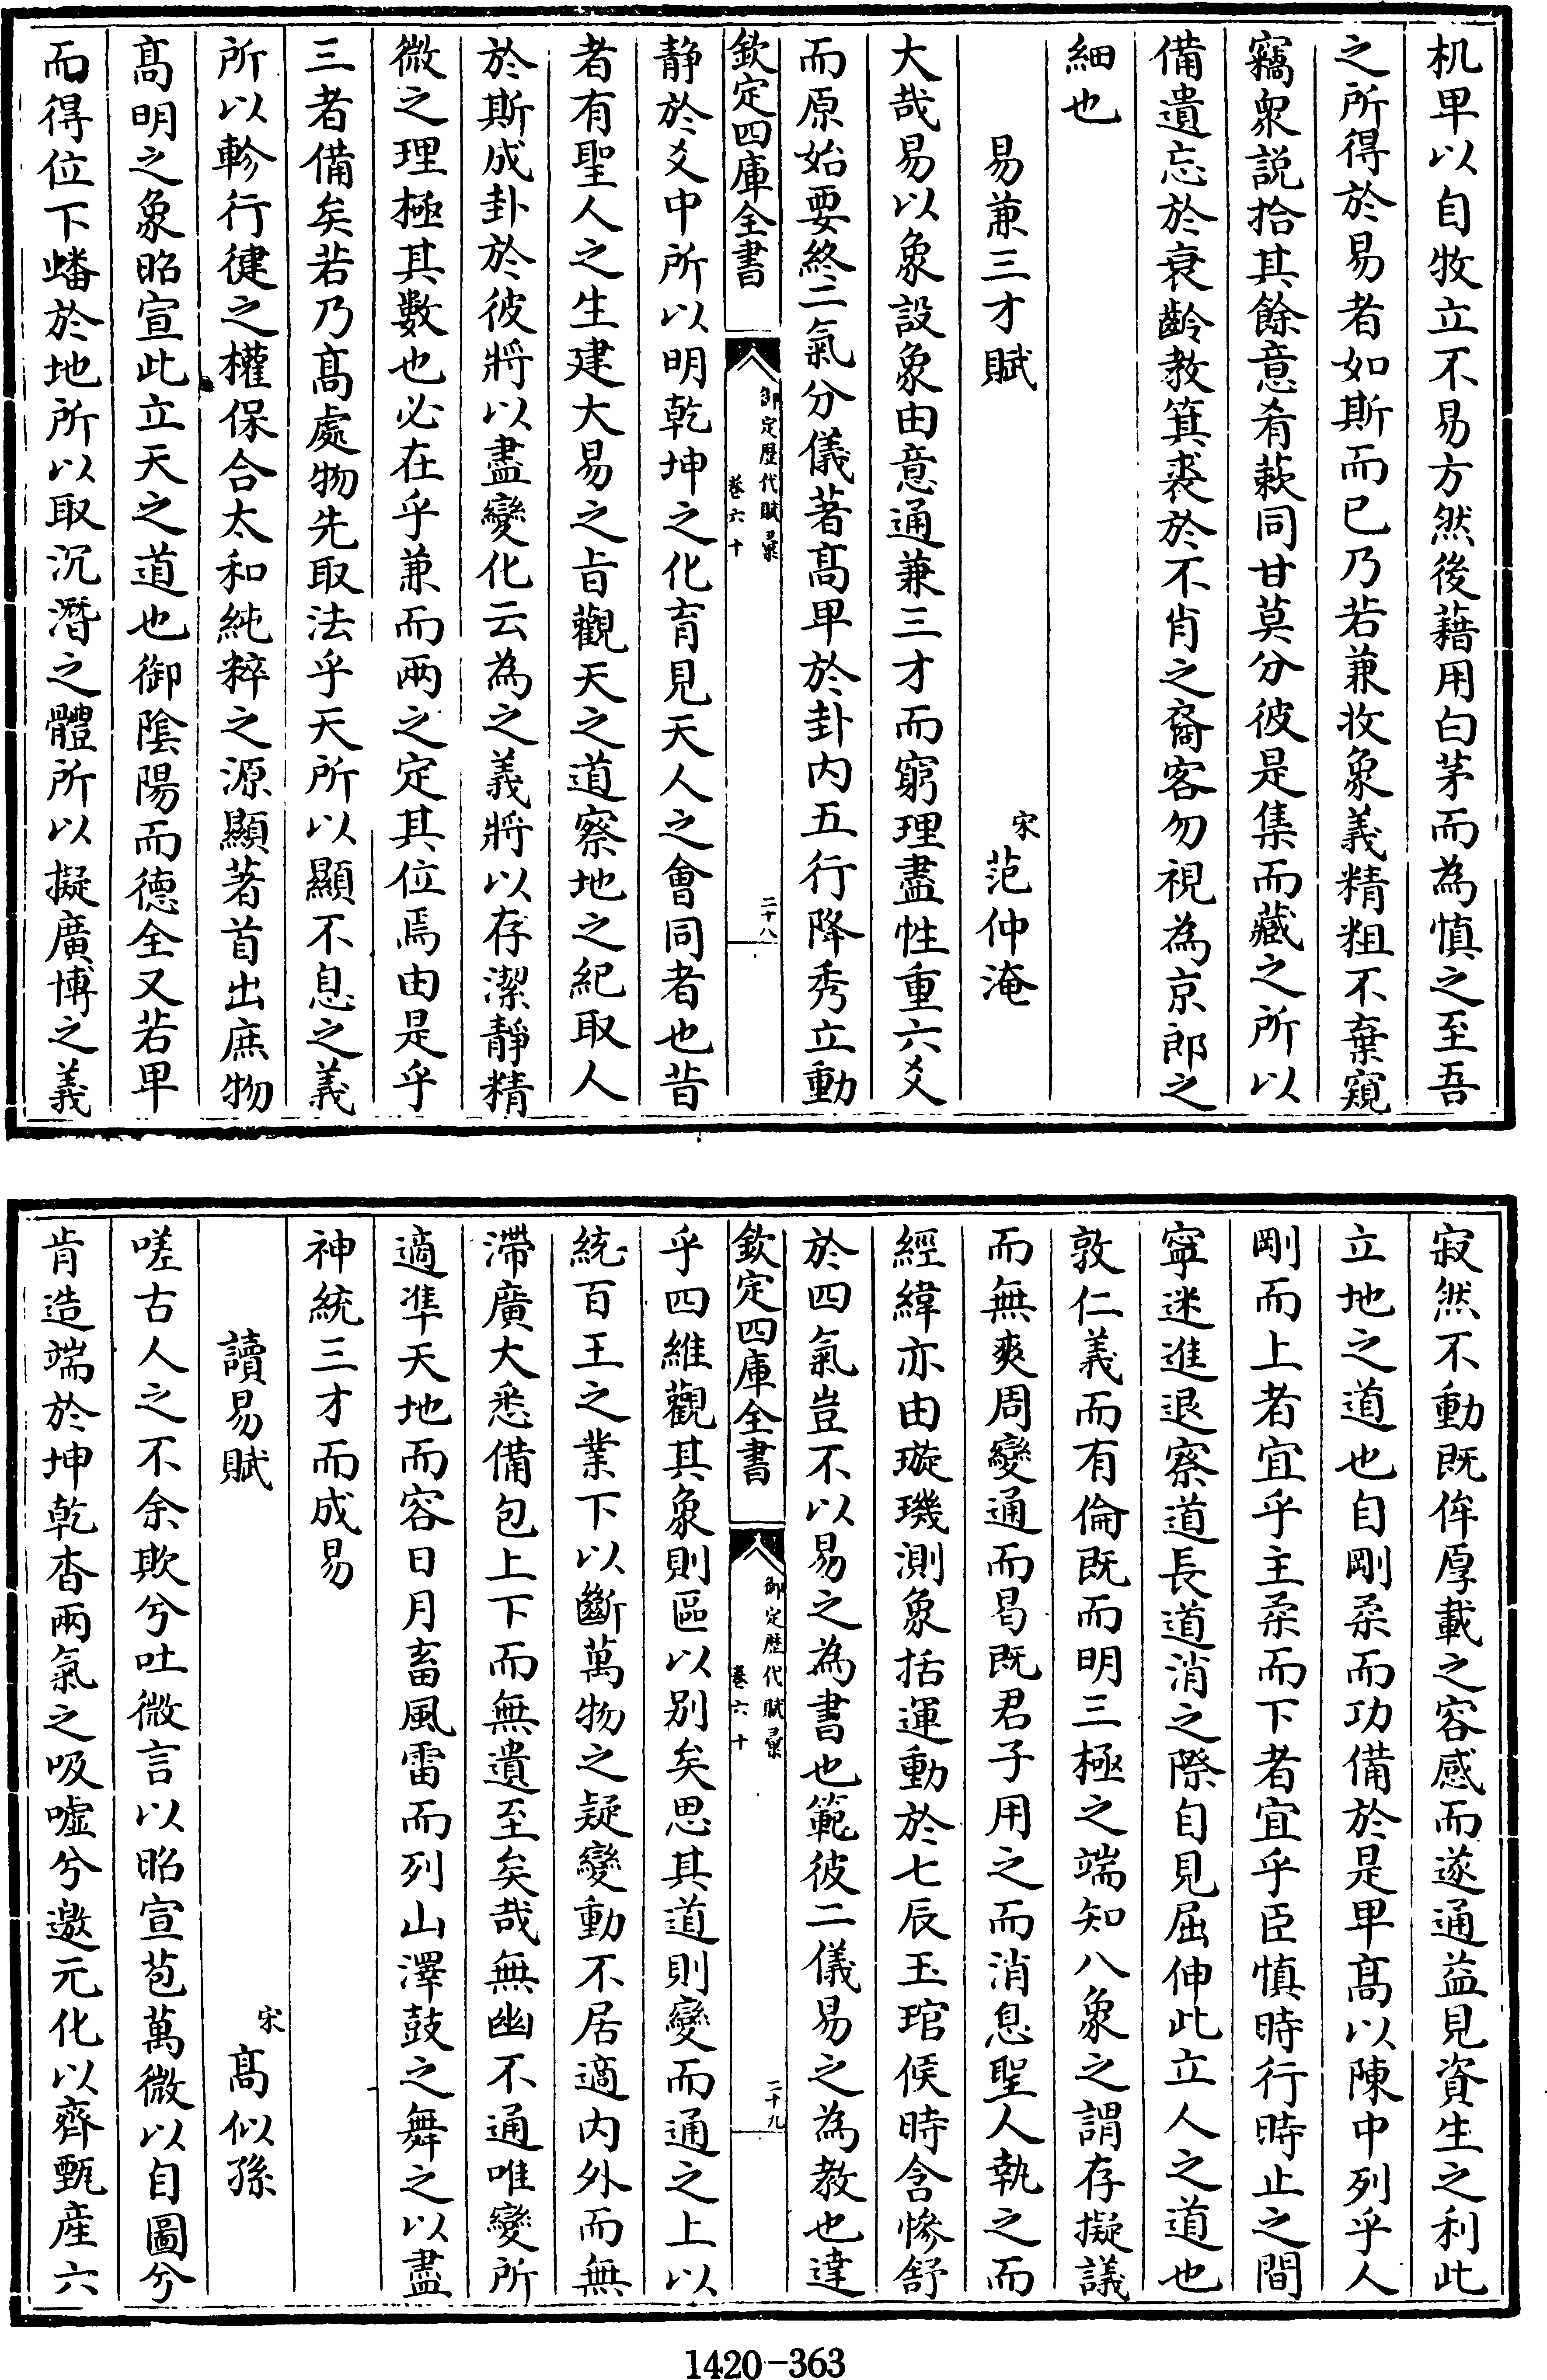 机卑以自牧立不易方然後藉用白茅而為慎之至吾
之所得於易者如斯而已乃若兼收象義精粗不棄窺
竊衆説拾其餘意肴蔌同甘莫分彼是集而藏之所以
備遺忘於衰齡教箕裘於不肖之裔客勿視為京郎之
細也
易兼三才賦
宋范仲淹
大哉易以象設象由意通兼三才而窮理盡性重六爻
而原始要終二氣分儀著髙卑於卦内五行降秀立動
欽定四庫全書
御定歴代賦彚
卷六十
二十八
静於爻中所以明乾坤之化育見天人之會同者也昔
者有聖人之生建大易之旨觀天之道察地之紀取人
於斯成卦於彼將以盡變化云為之義將以存潔靜精
微之理極其數也必在乎兼而兩之定其位焉由是乎
三者備矣若乃髙處物先取法乎天所以顯不息之義
所以軫行健之權保合太和純粹之源顯著首出庶物
髙明之象昭宣此立天之道也御陰陽而德全又若卑
而得位下蟠於地所以取沉潛之體所以擬廣博之義
寂然不動既侔厚載之容感而遂通益見資生之利此
立地之道也自剛柔而功備於是卑髙以陳中列乎人
剛而上者宜乎主柔而下者宜乎臣慎時行時止之間
寧迷進退察道長道消之際自見屈伸此立人之道也
敦仁義而有倫既而明三極之端知八象之謂存擬議
而無爽周變通而曷既君子用之而消息聖人執之而
經緯亦由璇璣測象括運動於七辰玉琯候時含慘舒
於四氣豈不以易之為書也範彼二儀易之為教也達
欽定四庫全書
御定歴代賦彚
卷六十
二十九
乎四維觀其象則區以别矣思其道則變而通之上以
統百王之業下以斷萬物之疑變動不居適内外而無
滯廣大悉備包上下而無遺至矣哉無幽不通唯變所
適準天地而容日月畜風雷而列山澤鼓之舞之以盡
神統三才而成易
讀易賦
宋髙似孫
嗟古人之不余欺兮吐微言以昭宣苞萬微以自圖兮
肯造端於坤乾杳兩氣之吸嘘兮邀元化以齊甄産六
1420-363